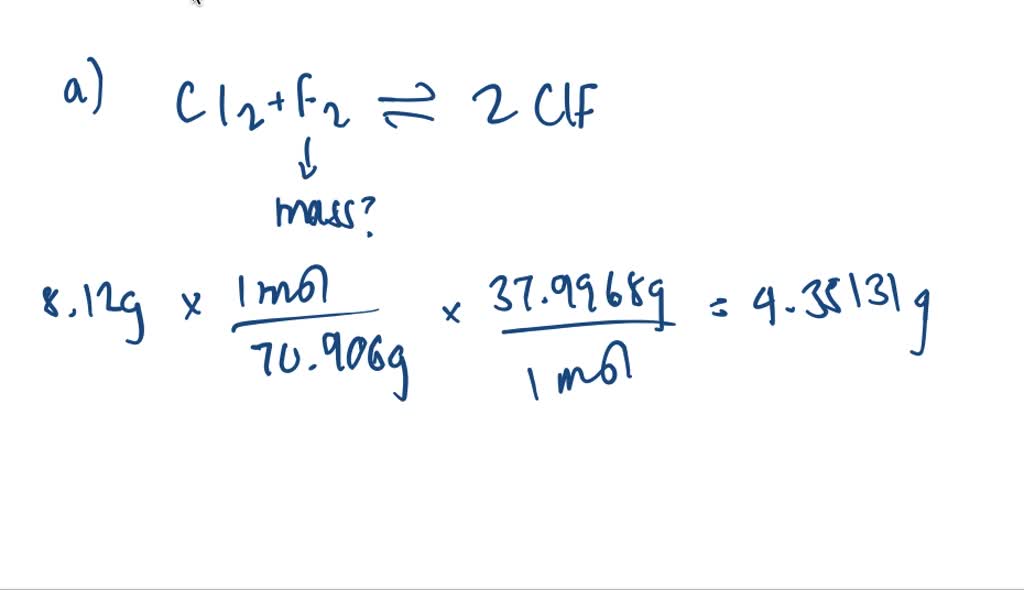 a) Cl2 + F2 ⇌ 2 ClF
↓
mass?
8.12g × 1 mol / 70.906g × 37.9968g / 1 mol = 4.35131 g